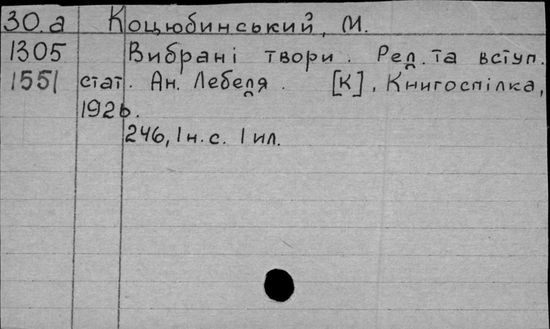 30.а Коцюбинський, М.
1305 Вибрані твори. Ред. та вступ.
1551 стат. Ан. Лебедя. [К], Книгоспілка,
1926.
246, 1 н. с. 1 ил.